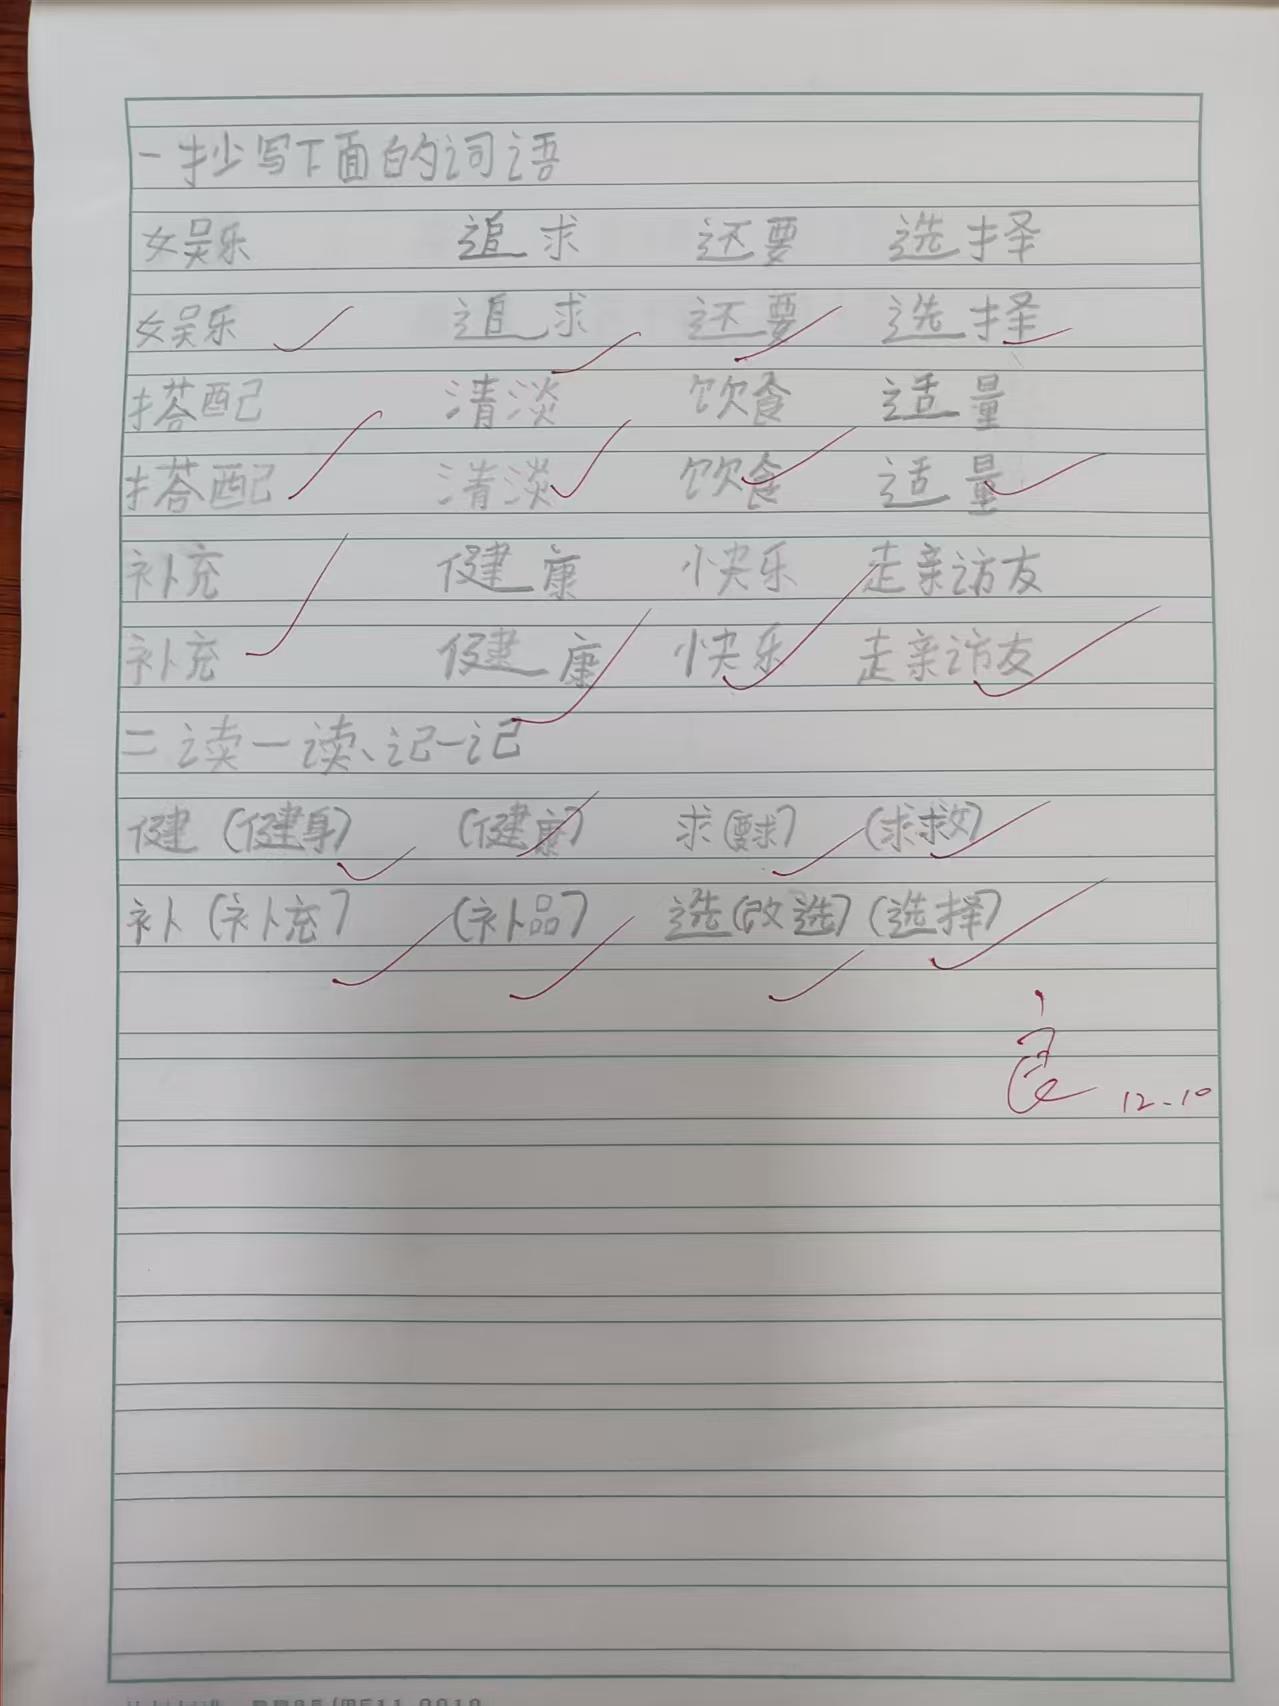 一 抄写下面的词语
娱乐 追求 还要 选择
娱乐 追求 还要 选择
搭配 清淡 饮食 适量
搭配 清淡 饮食 适量
补充 健康 快乐 走亲访友
补充 健康 快乐 走亲访友
二 读一读、记一记
健(健身) (健康) 求(要求) (求救)
补(补充) (补品) 选(改选) (选择)
12.10